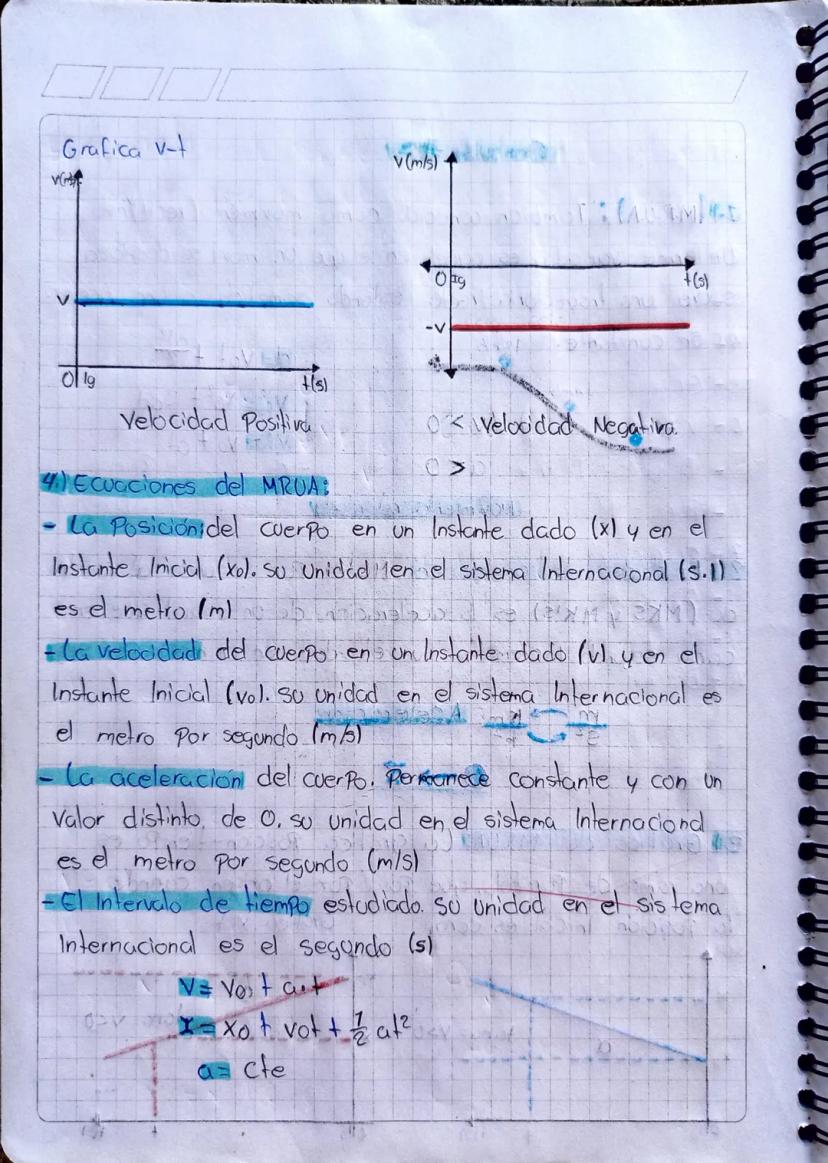 Grafica v-t
V(m/s)
V
0 Ig
t(s)
Velocidad Positiva
V(m/s)
0 Ig
t(s)
-V
Velocidad Negativa.
4.) Ecuaciones del MRUA:
- La Posición: del cuerpo en un Instante dado (x) y en el
Instante Inicial (xo). su unidad en el sistema Internacional (S.I)
es el metro (m)
- La velocidad del cuerpo en un Instante dado (v) y en el
Instante Inicial (vo). su unidad en el sistema Internacional es
el metro por segundo (m/s)
- La aceleración del cuerpo. Permanece constante y con un
valor distinto de 0. su unidad en el sistema Internacional
es el metro por segundo (m/s)
- El Intervalo de tiempo estudiado. su unidad en el sistema
Internacional es el segundo (s)
V = Vo + a.t
X = Xo + vot + 1/2 at²
a = cte